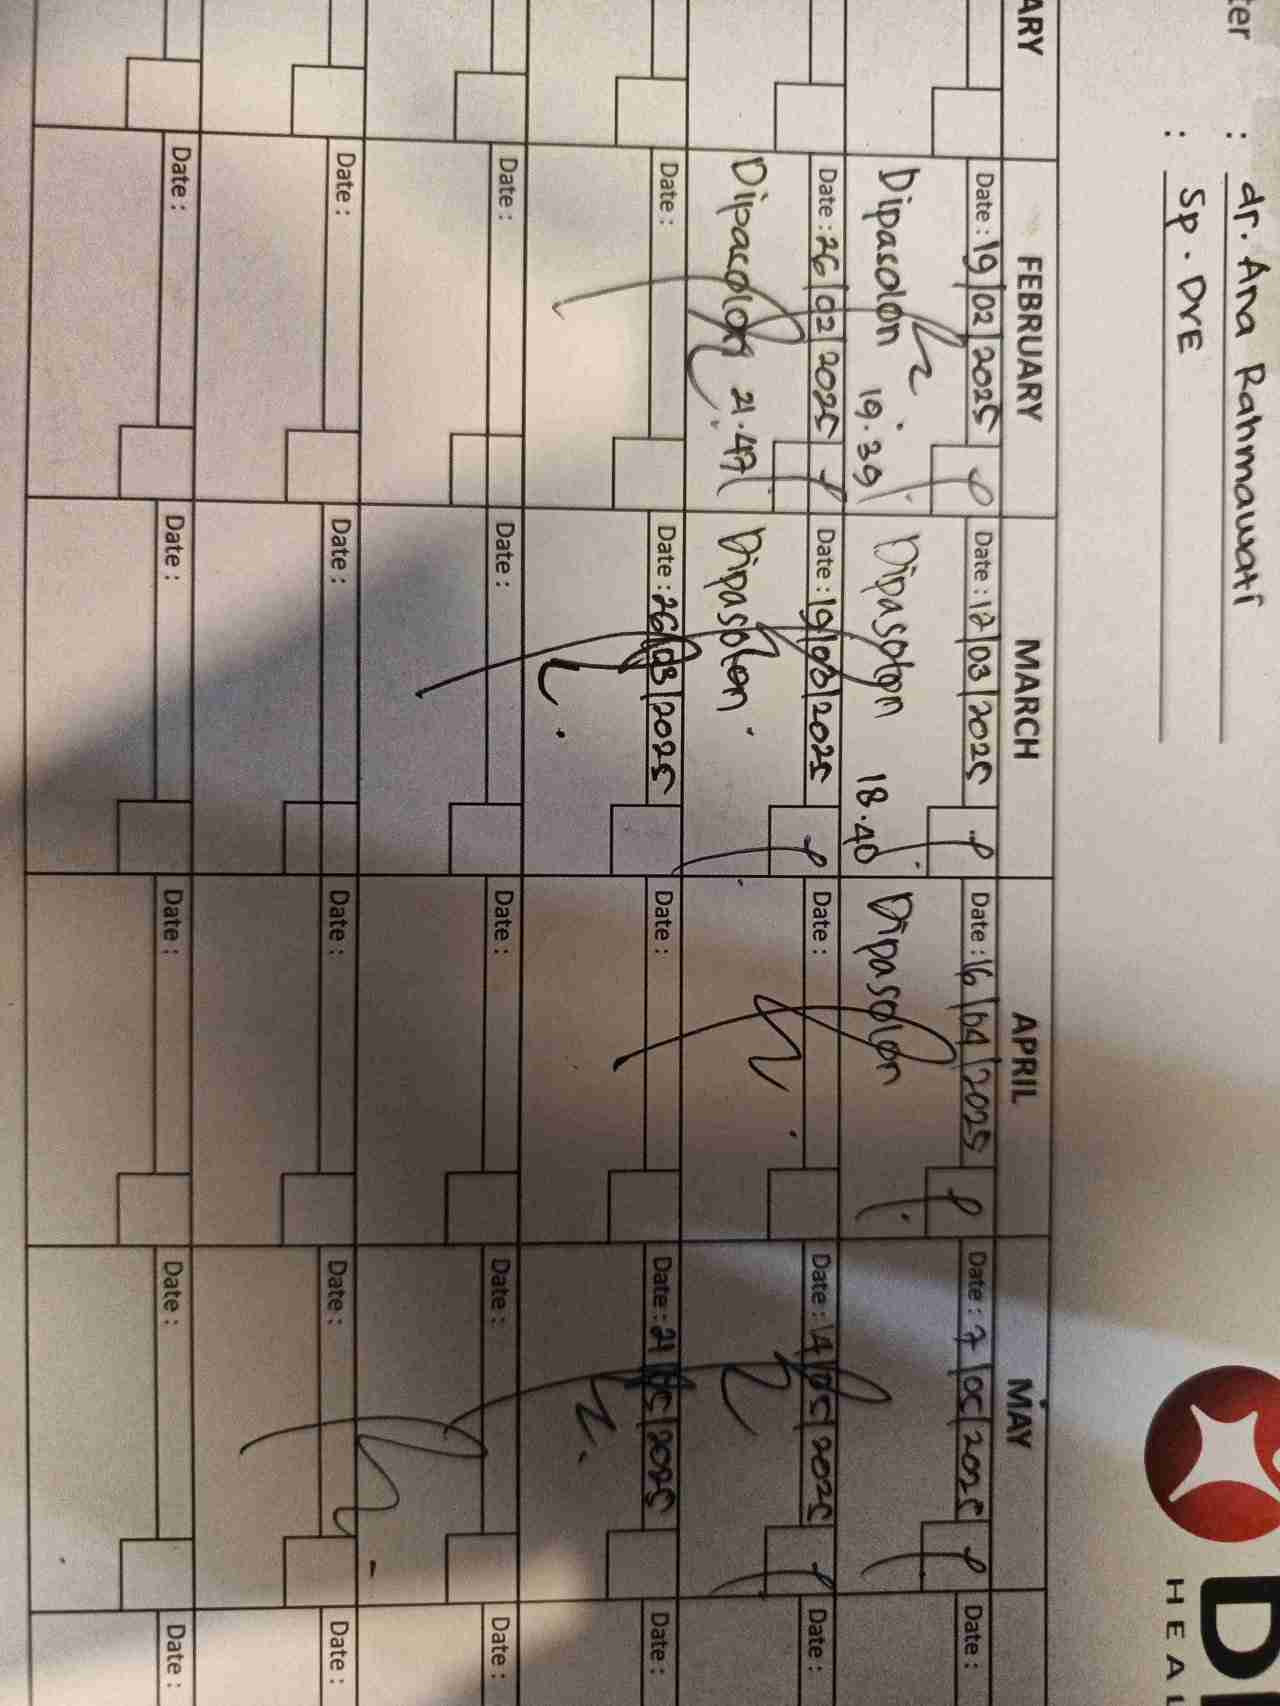 ter : dr. Ana Rahmawati
: Sp. DVE
D
HEAL
ARY FEBRUARY MARCH APRIL MAY
Date : 19/02/2025 Date : 12/03/2025 Date : 16/04/2025 Date : 7/05/2025 Date :
Dipasolon 19.39 Dipasolon 18.40 Dipasolon
Date : 26/02/2025 Date : 19/03/2025 Date : Date : 14/05/2025 Date :
Dipasolon 21.47 Dipasolon
Date : Date : 26/03/2025 Date : Date : 21/05/2025 Date :
Date : Date : Date : Date : Date :
Date : Date : Date : Date : Date :
Date : Date : Date : Date : Date :